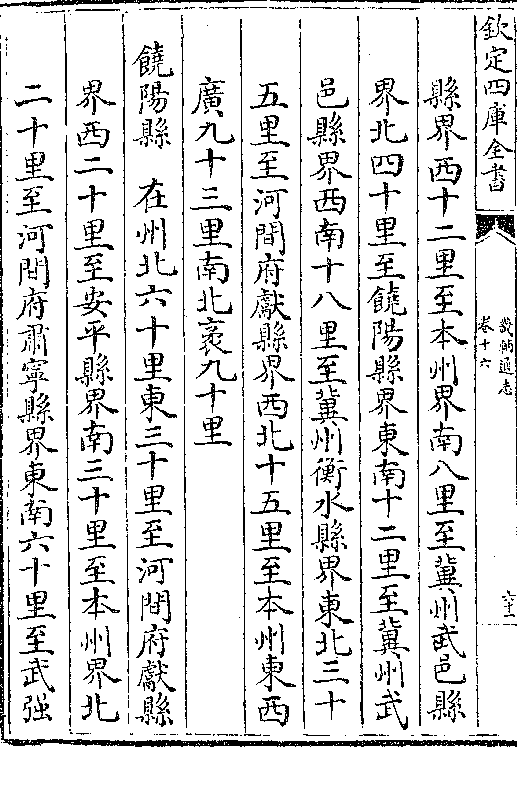 欽定四庫全書
畿輔通志
卷十六
縣界西十二里至本州界南八里至冀州武邑縣
界北四十里至饒陽縣界東南十二里至冀州武
邑縣界西南十八里至冀州衡水縣界東北三十
五里至河間府獻縣界西北十五里至本州東西
廣九十三里南北袤九十里
饒陽縣 在州北六十里東三十里至河間府獻縣
界西二十里至安平縣界南三十里至本州界北
二十里至河間府肅寧縣界東南六十里至武强